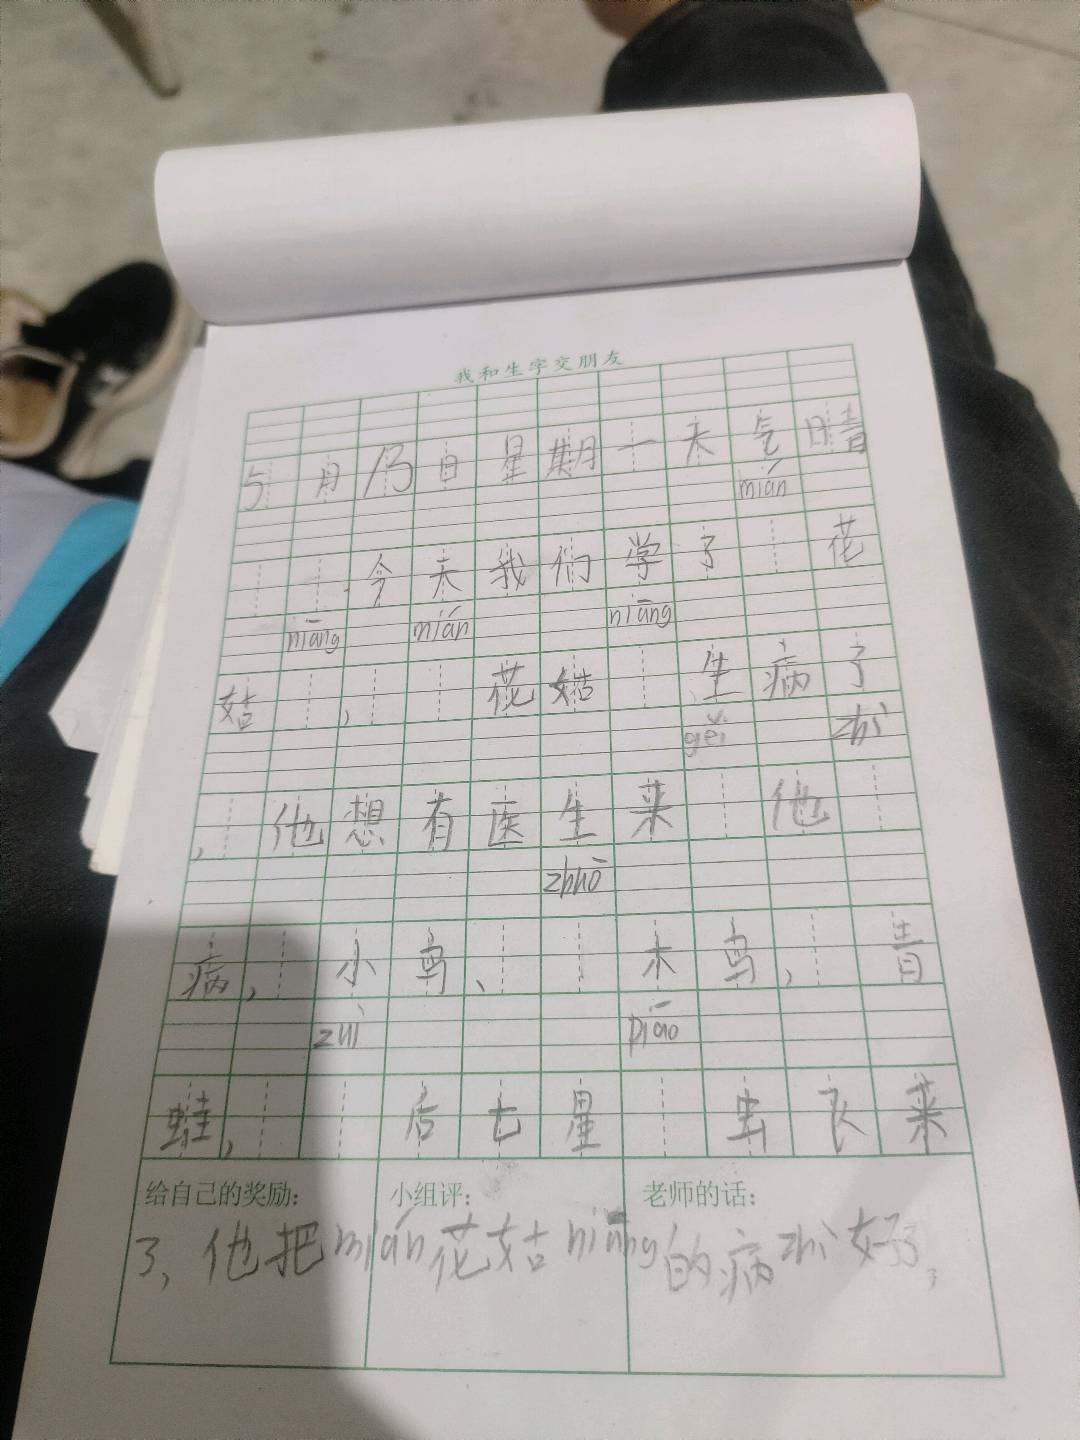 我和生字交朋友
5月13日星期一天气晴
mián
今天我们学了 花
niāng mián niāng
姑 , 花姑 生病了
gěi zhì
,他想有医生来 他
zhuó
病, 小鸟、 木鸟, 青
zhī piáo
蛙, 后七星 虫飞来
给自己的奖励: 小组评: 老师的话:
了,他把mián花姑niāng的病zhì好了,